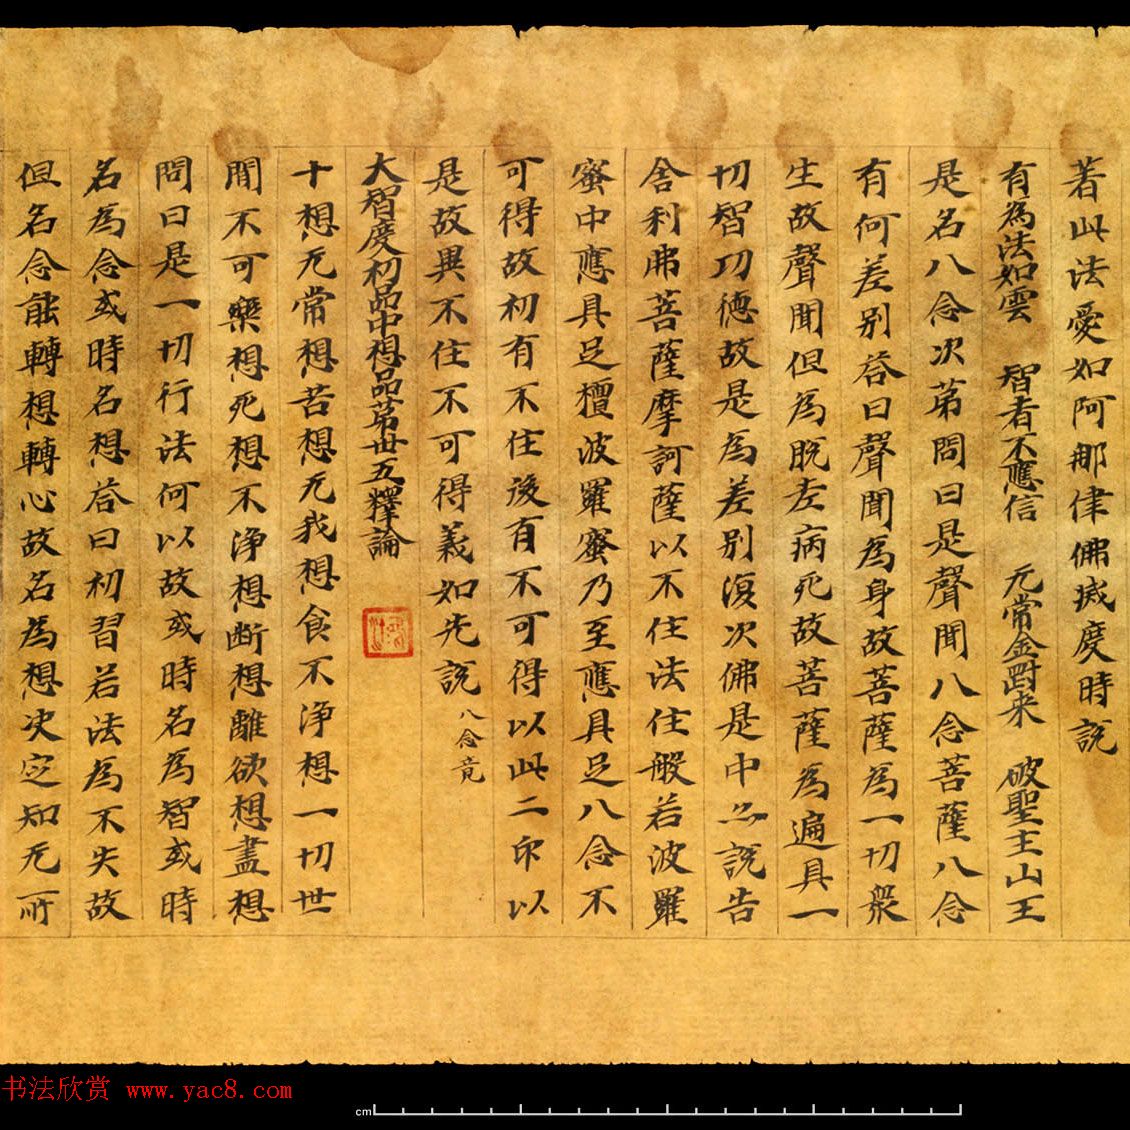 著此法愛如阿那律佛滅度時説
有為法如雲　智者不應信　无常金對来　破聖主山王
是名八念次第問曰是聲聞八念菩薩八念
有何差別荅曰聲聞為身故菩薩為一切衆
生故聲聞但為脱老病死故菩薩為遍具一
切智功德故是為差別復次佛是中亦説告
舎利弗菩薩摩訶薩以不住法住般若波羅
蜜中應具足檀波羅蜜乃至應具足八念不
可得故初有不住後有不可得以此二印以
是故異不住不可得義如先説 八念竟
大智度初品中想品第卅五釋論
十想无常想苦想无我想食不淨想一切世
間不可樂想死想不淨想斷想離欲想盡想
問曰是一切行法何以故或時名為智或時
名為念或時名想荅曰初習若法為不失故
但名念能轉想轉心故名為想决定知无所
书法欣赏 www.yac8.com
cm